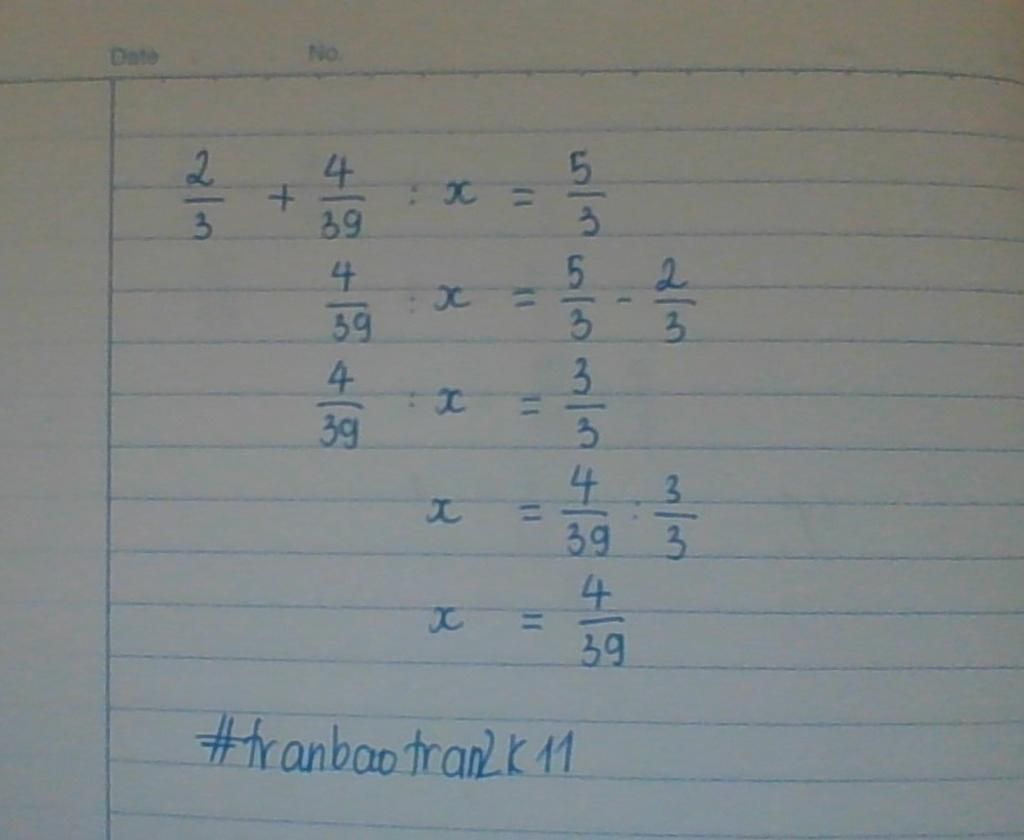 Date No.
2/3 + 4/39 : x = 5/3
4/39 : x = 5/3 - 2/3
4/39 : x = 3/3
x = 4/39 : 3/3
x = 4/39
#tranbaotran2k11